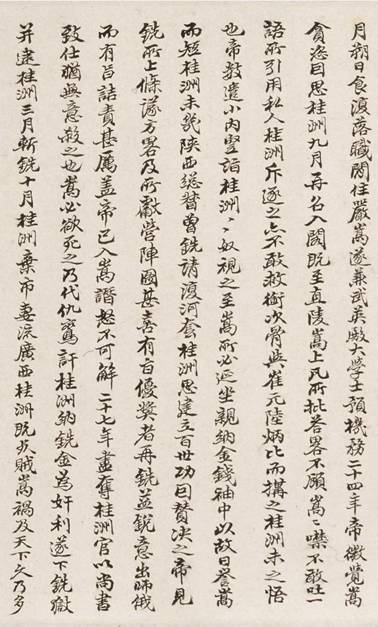 月朔日食復落職閒住嚴嵩遂兼武英殿大學士預機務二十四年帝微覺嵩
貪恣因思桂洲九月再召入閣既至直陵嵩上凡所批答畧不顧嵩〻噤不敢吐一
語所引用私人桂洲斥逐之亦不敢救銜次骨與崔元陸炳比而搆之桂洲未之悟
也帝數遣小內豎詣桂洲〻奴視之至嵩所必延坐親納金錢袖中以故日譽嵩
而短桂洲未幾陝西總督曾銑請復河套桂洲思建立百世功因贊決之帝見
銑所上條議方畧及所獻營陣圖甚喜有旨優獎者再銑益銳意出師俄
而有旨詰責甚厲蓋帝已入嵩譖怒不可解二十七年盡奪桂洲官以尚書
致仕猶無意殺之也嵩必欲死之乃代仇鸞訐桂洲納銑金為奸利遂下銑獄
并逮桂洲三月斬銑十月桂洲棄市妻流廣西桂洲既賊嵩禍及天下久乃多